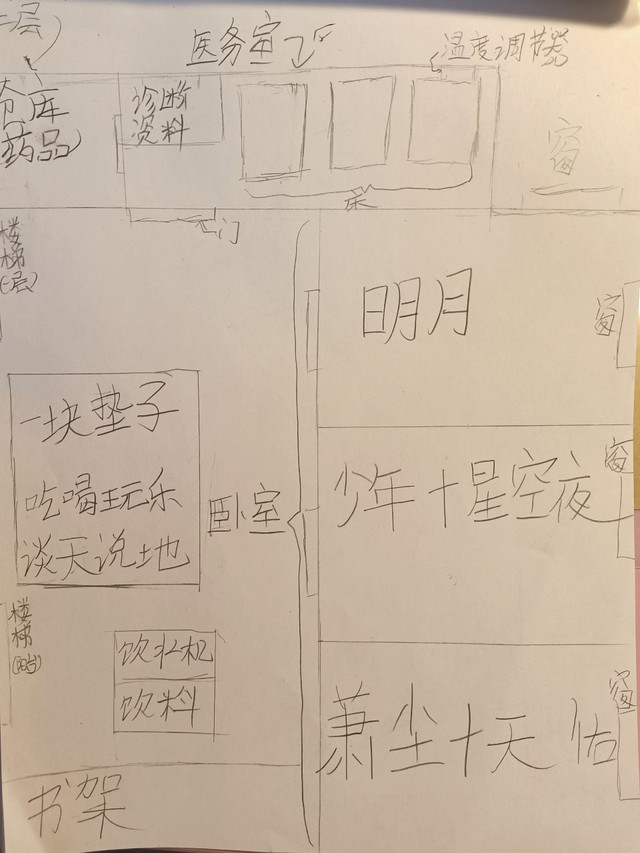 二层)
医务室
温度调节器
冷库
药品)
诊断
资料
窗
床
门
楼
梯
(二层)
明月
窗
一块垫子
吃喝玩乐
谈天说地
卧室
窗
少年+星空夜
楼
梯
饮水机
饮料
窗
萧尘+天佑
书架